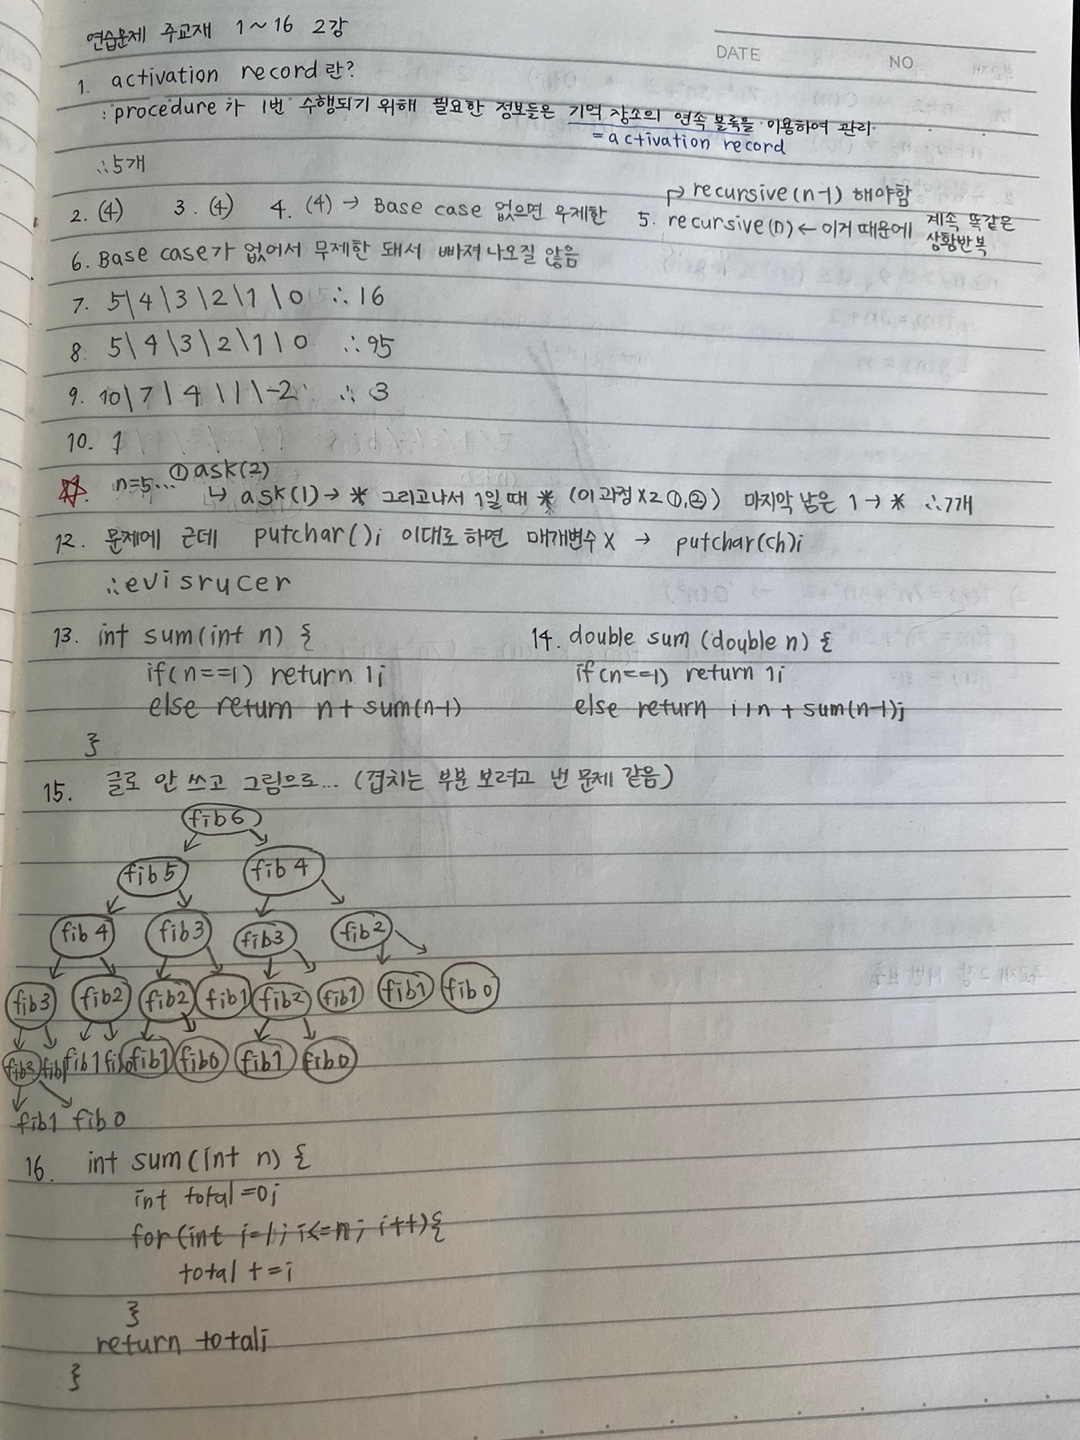 연습문제 주교재 1~16 2강
DATE NO
1. activation record란?
: procedure가 1번 수행되기 위해 필요한 정보들은 기억 장소의 연속 블록을 이용하여 관리
= activation record
∴5개
→ recursive(n-1) 해야함
2. (4) 3. (4) 4. (4) → Base case 없으면 무제한 5. recursive(n) ← 이거 때문에 계속 똑같은
상황반복
6. Base case가 없어서 무제한 돼서 빠져나오질 않음
7. 5\4\3\2\1\0 ∴16
8. 5\4\3\2\1\0 ∴95
9. 10\7\4\1\-2 ∴3
10. 1
☆. n=5... ① ask(2)
↳ ask(1) → * 그리고나서 1일 때 * (이 과정 X2 ①,②) 마지막 남은 1 → * ∴7개
12. 문제에 근데 putchar(); 이대로 하면 매개변수 X → putchar(ch);
∴evisrucer
13. int sum(int n) {
if(n==1) return 1;
else return n + sum(n-1)
}
14. double sum (double n) {
if(n==1) return 1;
else return 1/n + sum(n-1);
15. 글로 안 쓰고 그림으로... (겹치는 부분 보려고 낸 문제 같음)
fib6
fib5 fib4
fib4 fib3 fib3 fib2
fib3 fib2 fib2 fib1 fib2 fib1 fib1 fib0
fib1 fib1 fib0 fib1 fib0
fib1 fib0
16. int sum(int n) {
int total=0;
for(int i=1; i<=n; i++){
total +=i
}
return total;
}